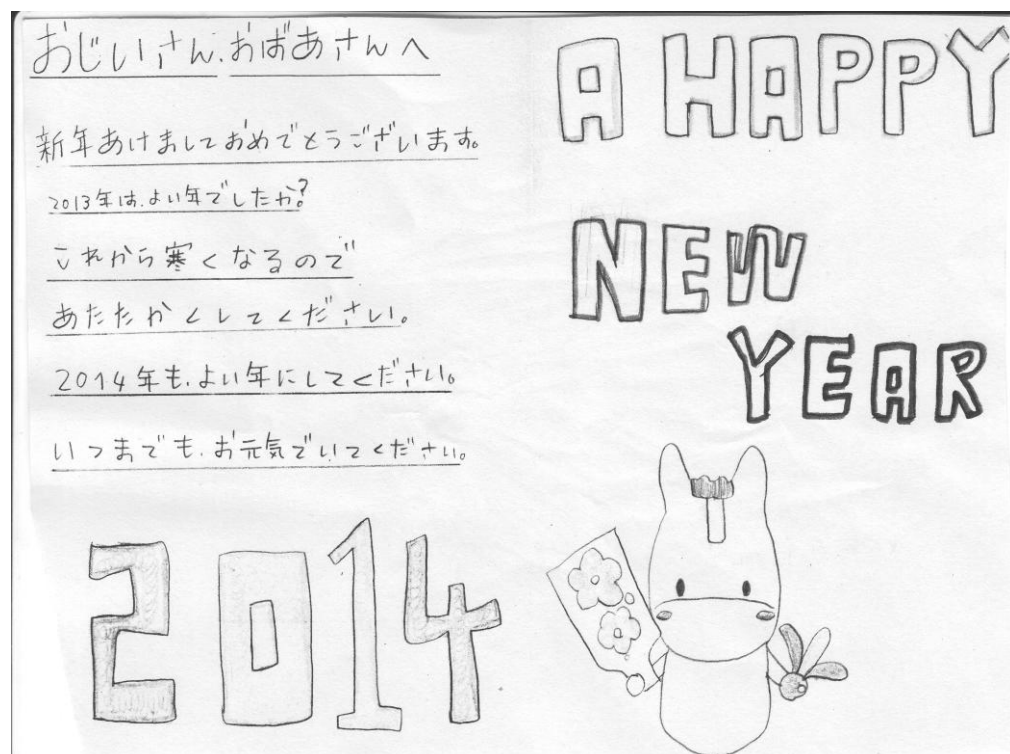 おじいさん.おばあさんへ
新年あけましておめでとうございます。
2013年は.よい年でしたか?
これから寒くなるので
あたたかくしてください。
2014年も.よい年にしてください。
いつまでも.お元気でいてください。
2014
A HAPPY
NEW
YEAR